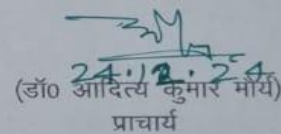 24.12.24
(डॉ0 आदित्य कुमार मौर्य)
प्राचार्य